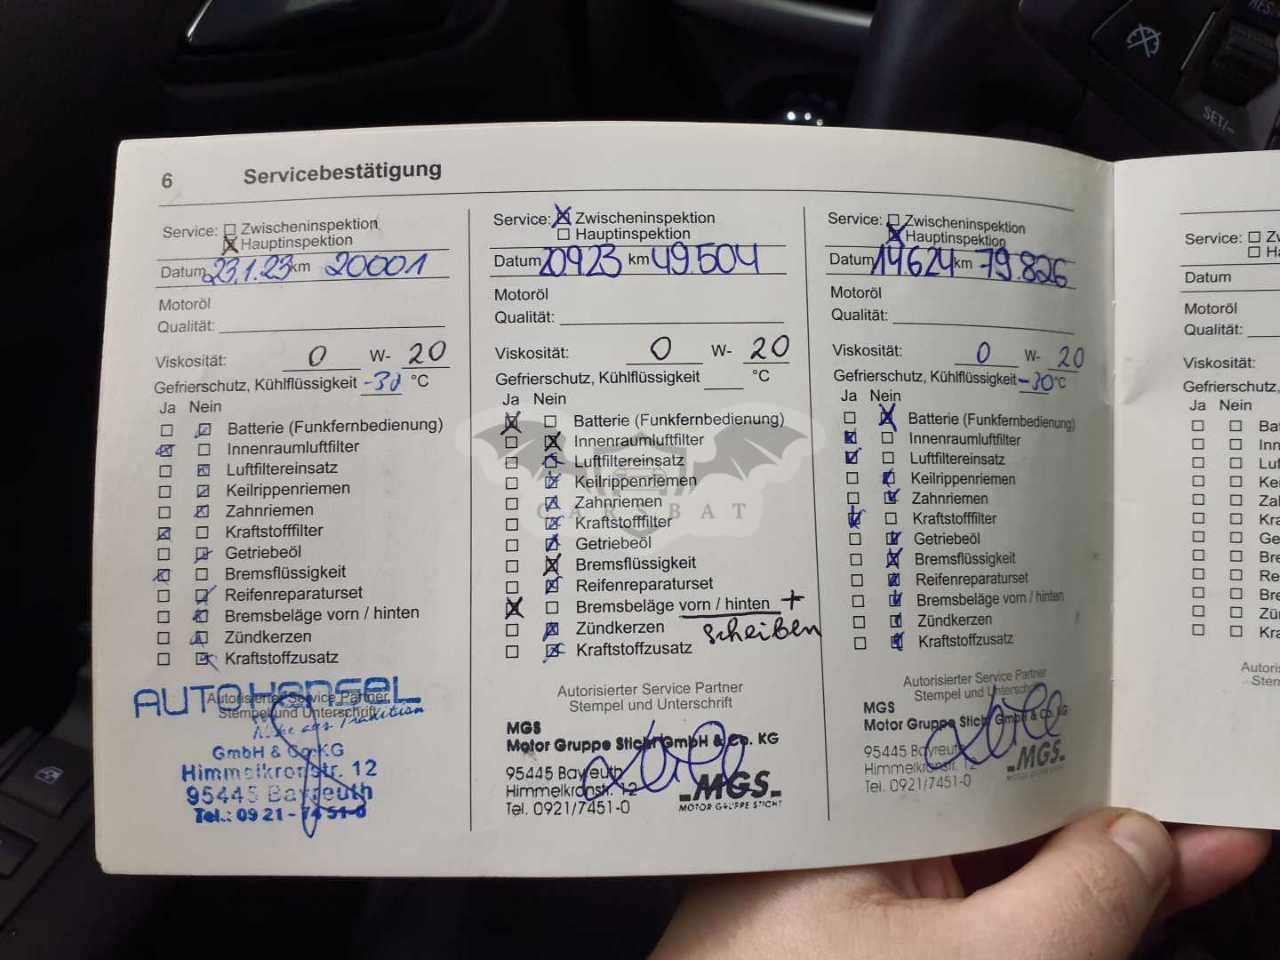 6 Servicebestätigung
Service: Zwischeninspektion
Hauptinspektion
Datum 23.1.23 km 20001
Motoröl
Qualität:
Viskosität: 0 W- 20
Gefrierschutz, Kühlflüssigkeit -30 °C
Ja Nein
Batterie (Funkfernbedienung)
Innenraumluftfilter
Luftfiltereinsatz
Keilrippenriemen
Zahnriemen
Kraftstofffilter
Getriebeöl
Bremsflüssigkeit
Reifenreparaturset
Bremsbeläge vorn / hinten
Zündkerzen
Kraftstoffzusatz
Autorisierter Service Partner
Stempel und Unterschrift
AUTO HENSEL
GmbH & Co KG
Himmelkronstr. 12
95445 Bayreuth
Tel.: 09 21 - 74 51-0
Service: Zwischeninspektion
Hauptinspektion
Datum 20923 km 49.504
Motoröl
Qualität:
Viskosität: 0 W- 20
Gefrierschutz, Kühlflüssigkeit °C
Ja Nein
Batterie (Funkfernbedienung)
Innenraumluftfilter
Luftfiltereinsatz
Keilrippenriemen
Zahnriemen
Kraftstofffilter
Getriebeöl
Bremsflüssigkeit
Reifenreparaturset
Bremsbeläge vorn / hinten +
Zündkerzen scheiben
Kraftstoffzusatz
Autorisierter Service Partner
Stempel und Unterschrift
MGS
Motor Gruppe Sticht GmbH & Co. KG
95445 Bayreuth
Himmelkronstr. 12
Tel. 0921/7451-0
MGS
MOTOR GRUPPE STICHT
Service: Zwischeninspektion
Hauptinspektion
Datum 14.6.24 km 79.826
Motoröl
Qualität:
Viskosität: 0 W- 20
Gefrierschutz, Kühlflüssigkeit -30 °C
Ja Nein
Batterie (Funkfernbedienung)
Innenraumluftfilter
Luftfiltereinsatz
Keilrippenriemen
Zahnriemen
Kraftstofffilter
Getriebeöl
Bremsflüssigkeit
Reifenreparaturset
Bremsbeläge vorn / hinten
Zündkerzen
Kraftstoffzusatz
Autorisierter Service Partner
Stempel und Unterschrift
MGS
Motor Gruppe Sticht GmbH & Co. KG
95445 Bayreuth
Himmelkronstr. 12
Tel. 0921/7451-0
MGS
MOTOR GRUPPE STICHT
Service:
Datum
Motoröl
Qualität:
Viskosität:
Gefrierschutz,
Ja Nein
CARSBAT
SET/-